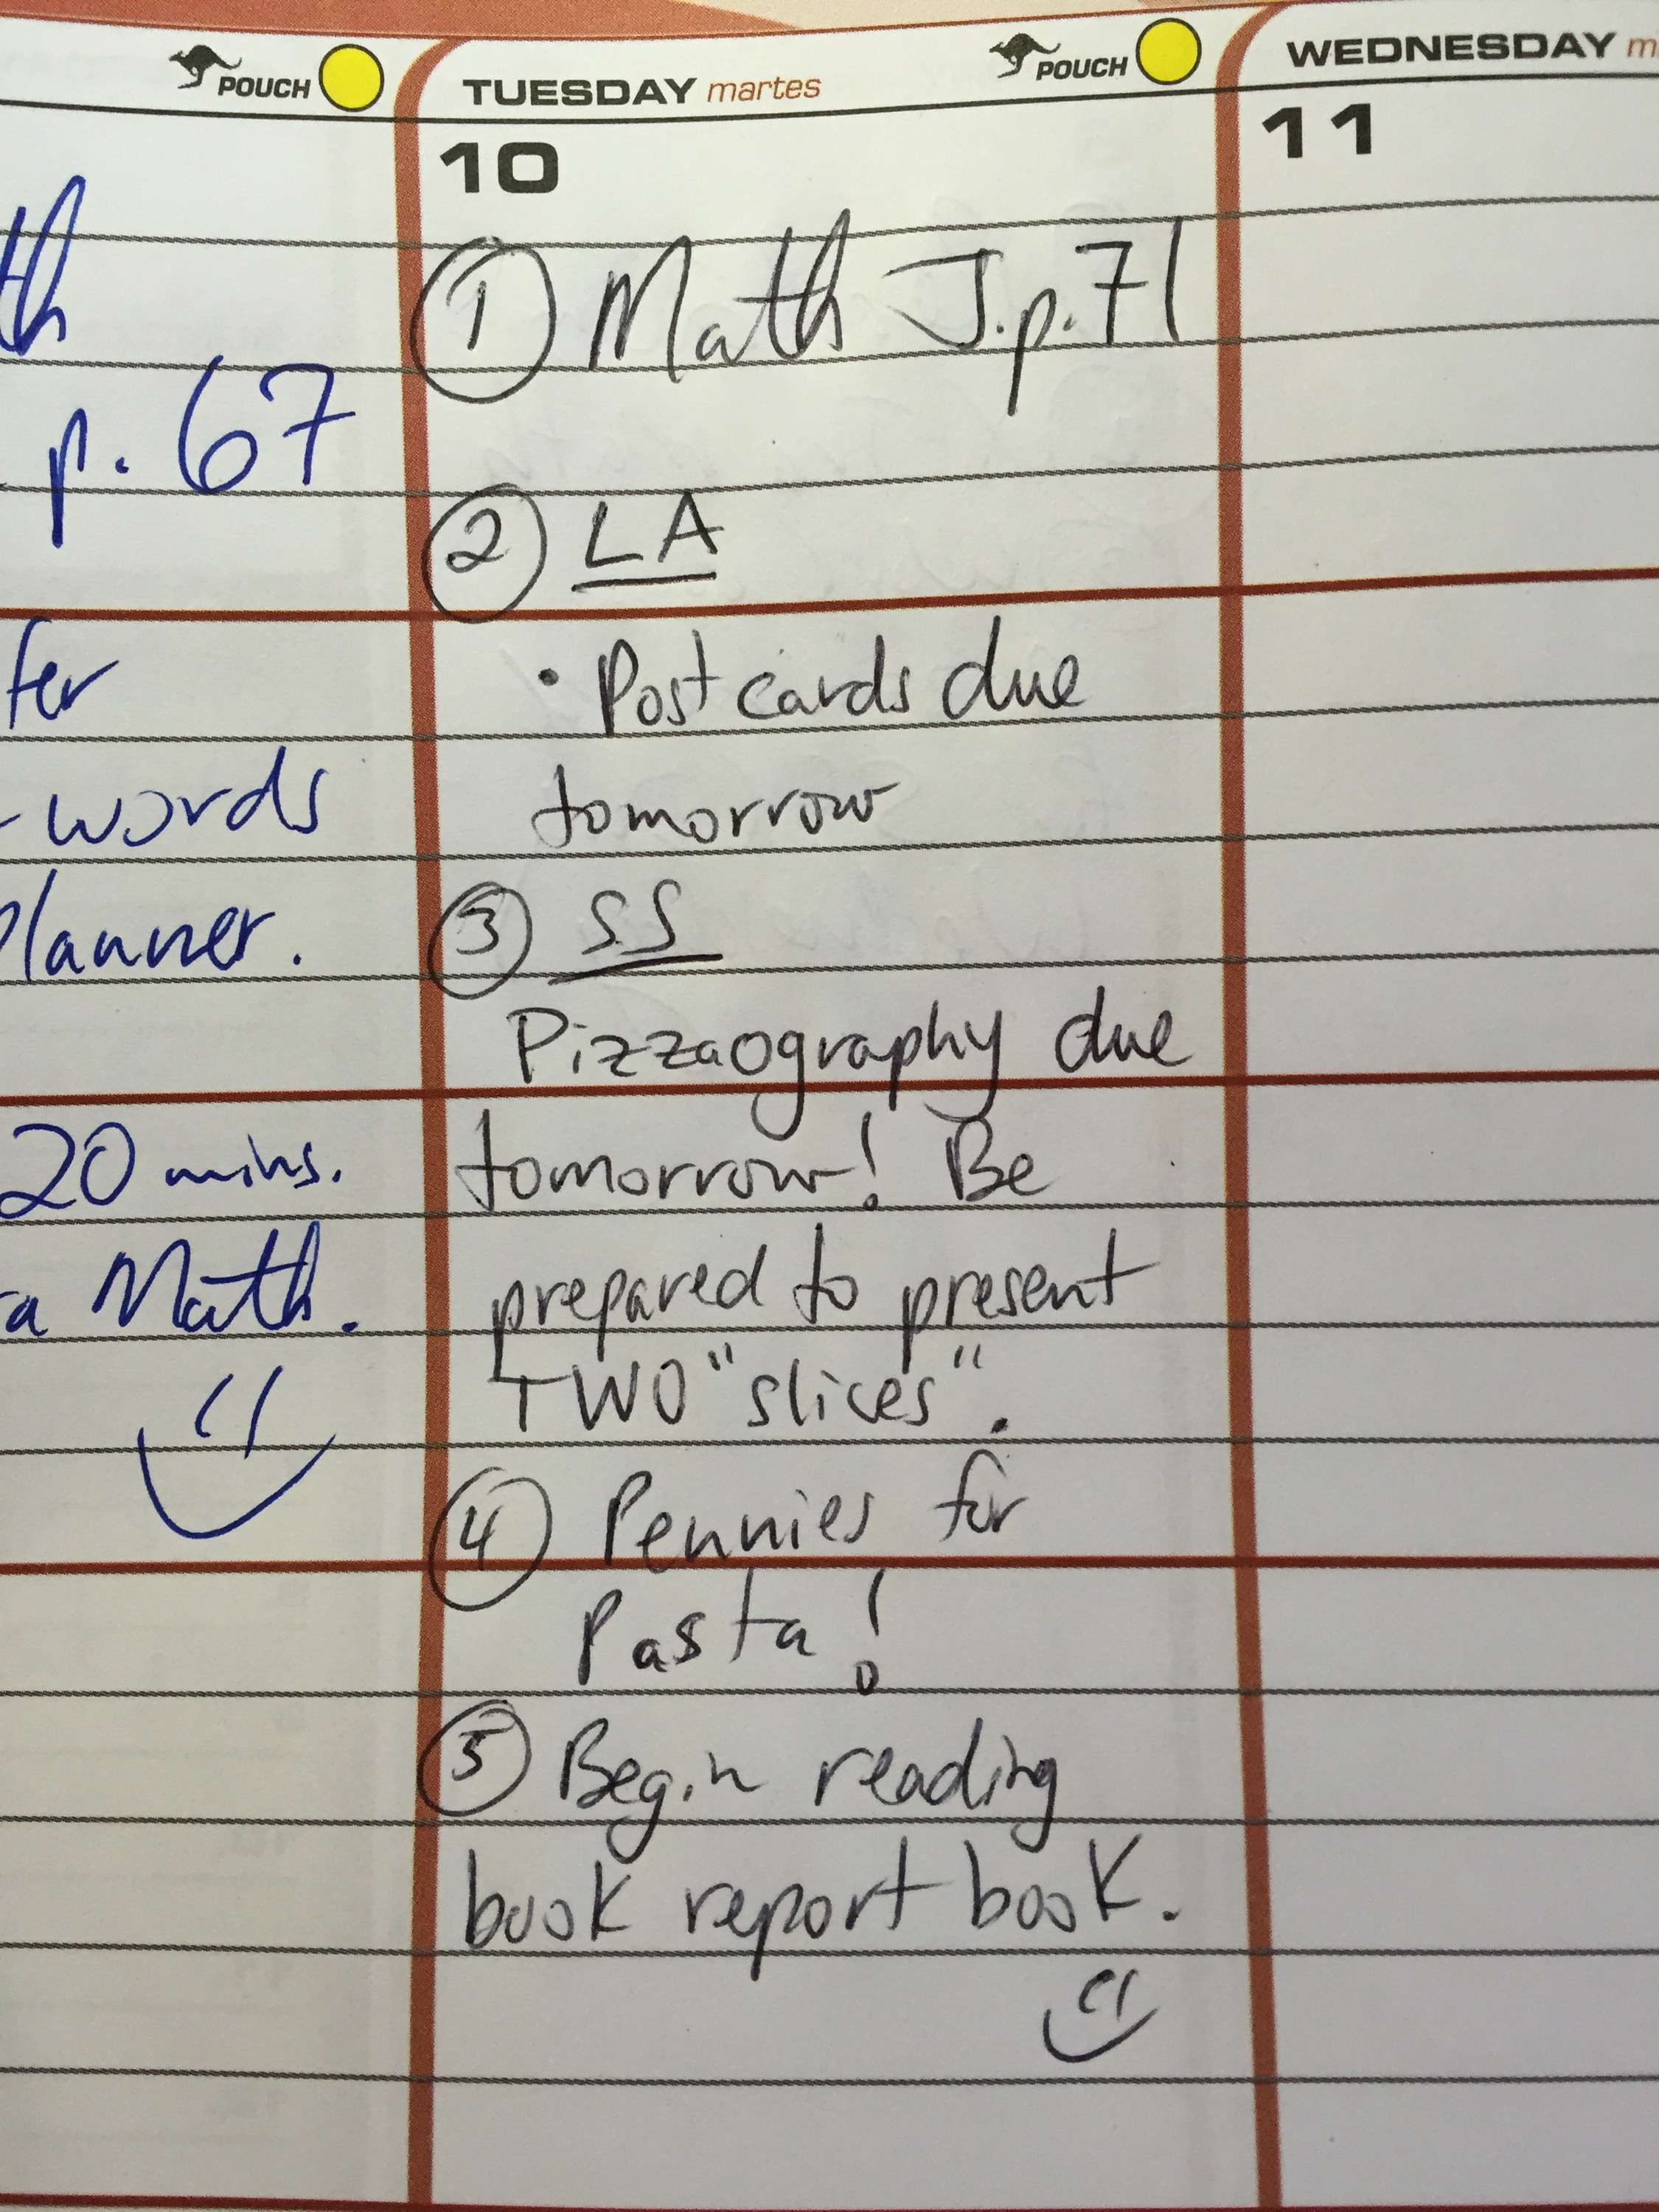 POUCH
th
p. 67
fer
words
Planner.
20 mins.
ra Math.
TUESDAY martes
POUCH
10
1 Math J.p.71
2 LA
• Postcards due
tomorrow
3 SS
Pizzaography due
tomorrow! Be
prepared to present
TWO "slices".
4 Pennies for
Pasta!
5 Begin reading
book report book.
WEDNESDAY mi
11